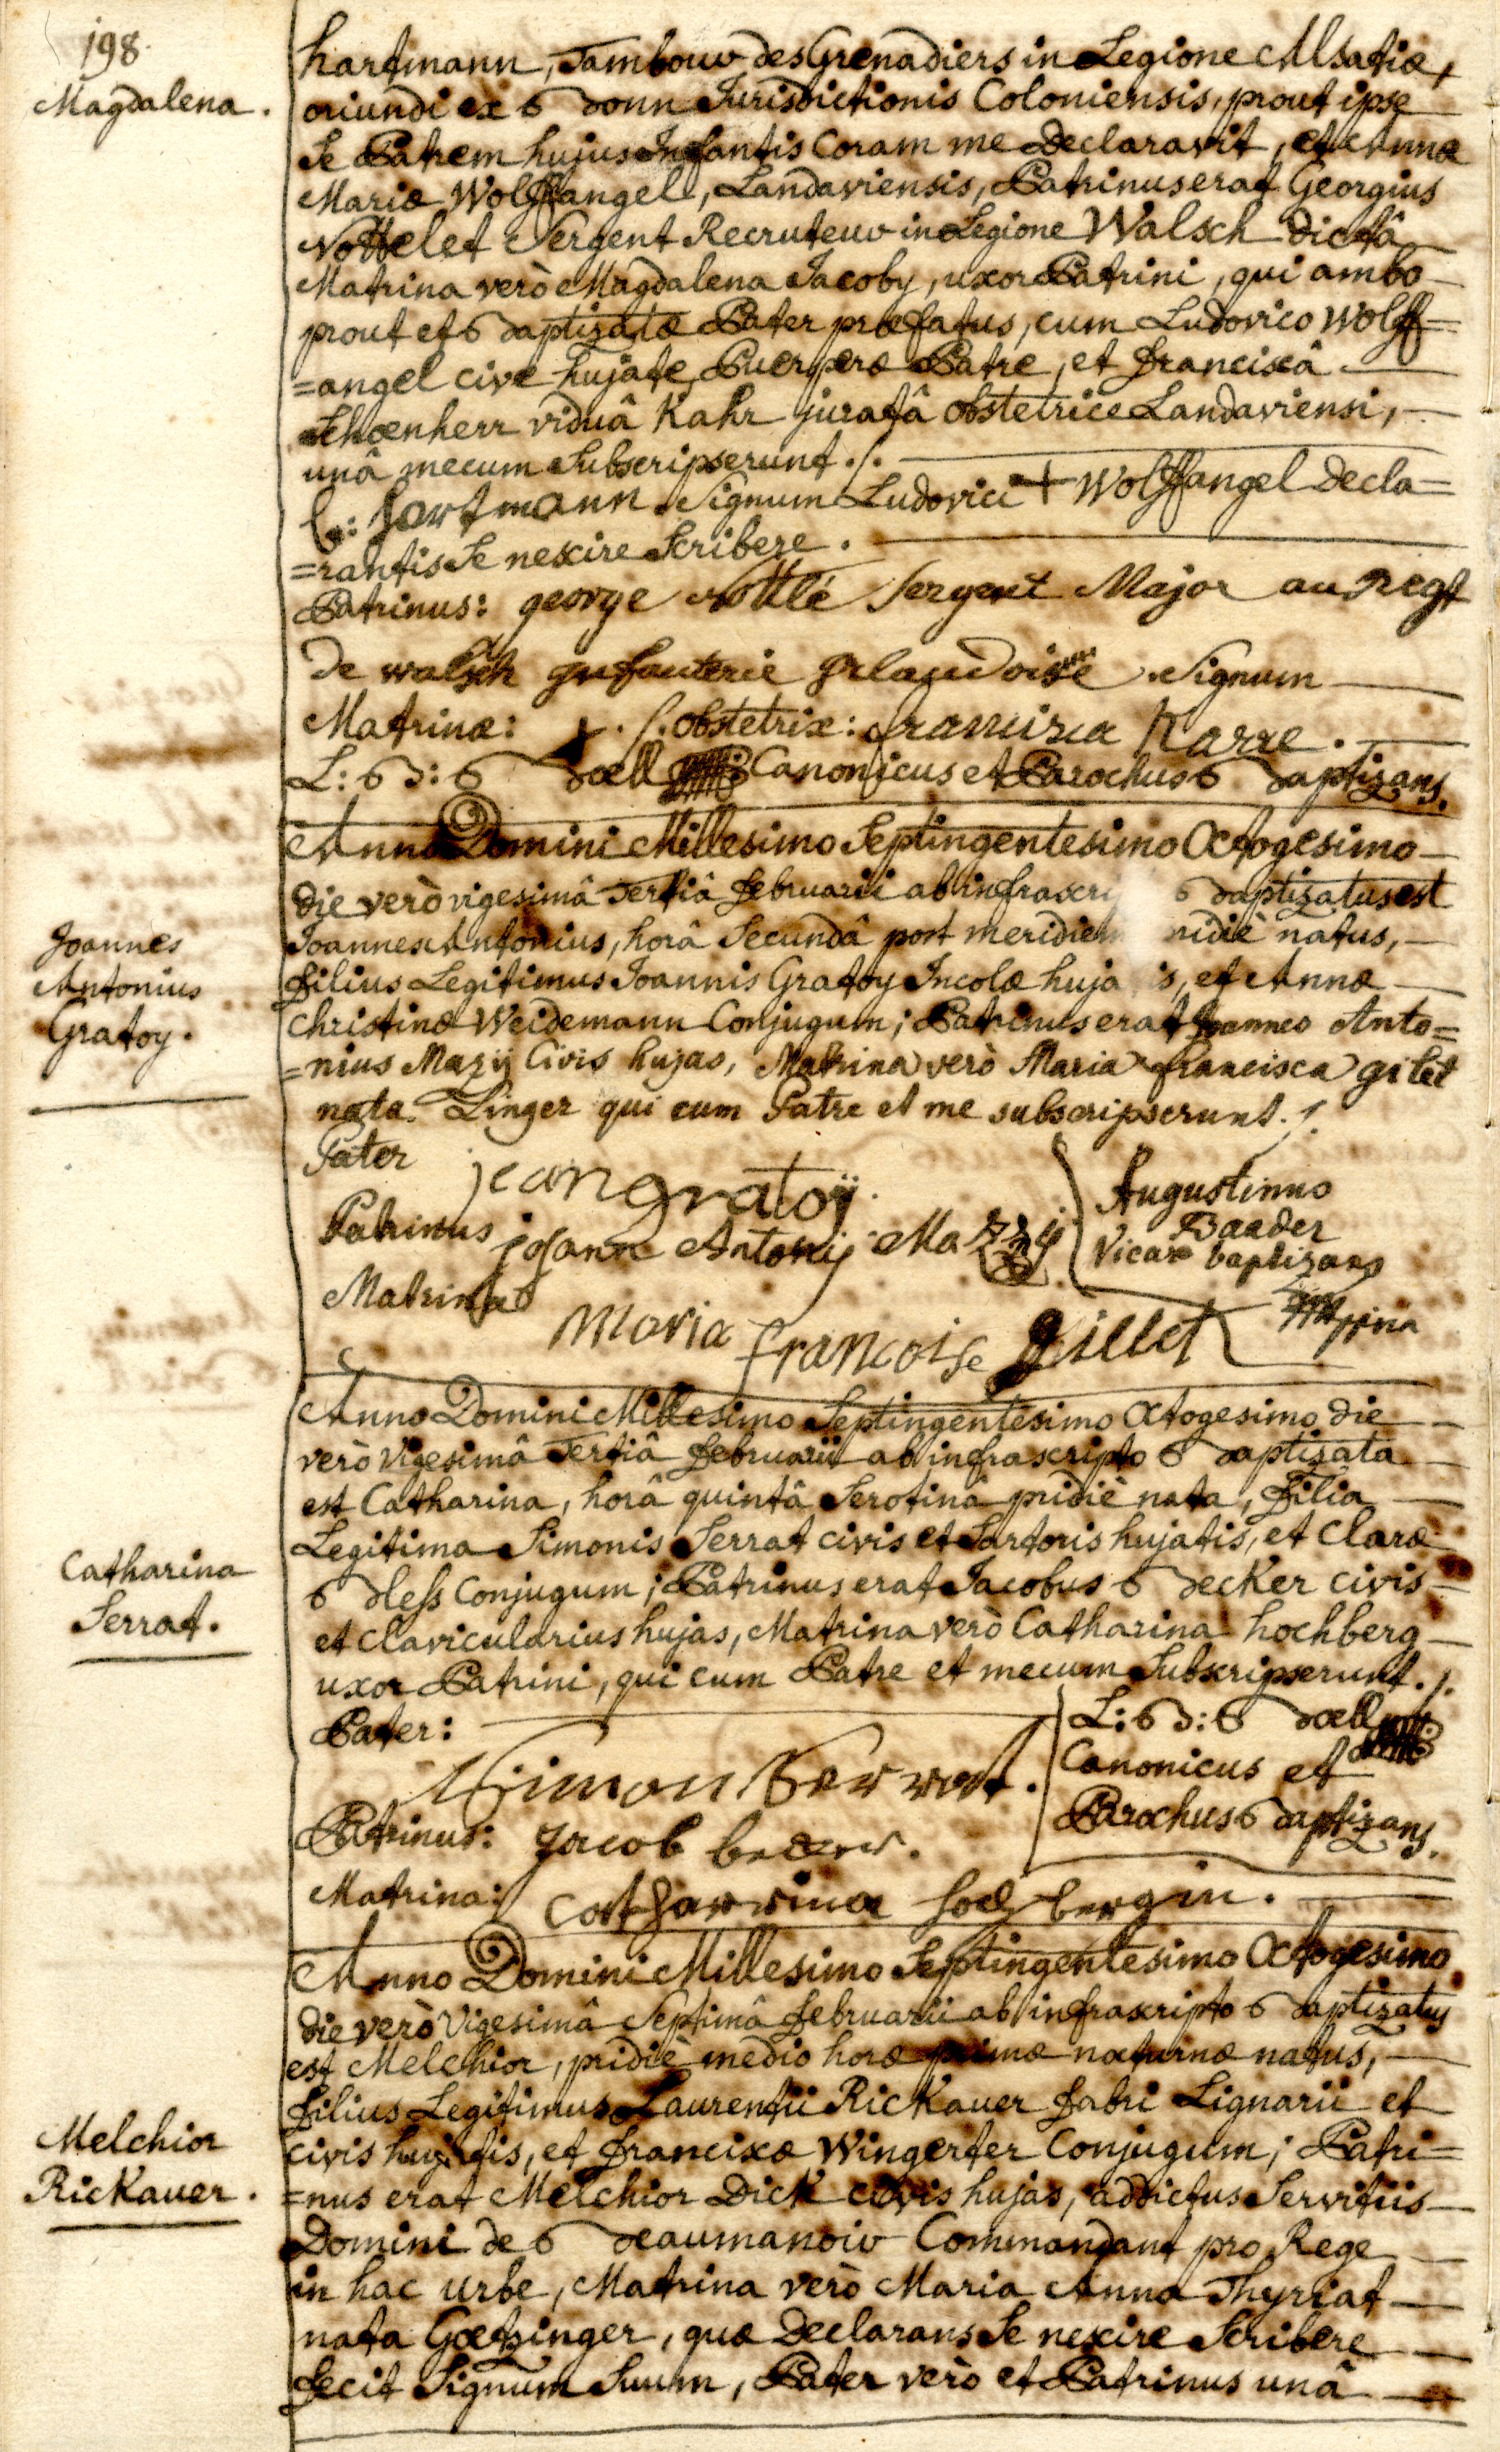 198.
Magdalena.
hartmann, Tambour des Grenadiers in Legione Alsatiæ,
oriundi ex Bonn Jurisdictionis Coloniensis, prout ipse
Se Patrem hujus Infantis Coram me Declaravit, et Annæ
Mariæ Wolffangel, Landaviensis, Patrinus erat Georgius
Nottelet Sergent Recruteur in Legione Walsch dictâ
Matrina verò Magdalena Jacoby, uxor Patrini, qui ambo
prout et Baptizatæ Pater præfatus, cum Ludovico Wolff=
=angel cive hujate Puerperæ Patre, et Franciscâ
Schoenherr viduâ Kahr juratâ obstetrice Landaviensi,
unâ mecum Subscripserunt ./.
hartmann. Signum Ludovici + Wolffangel Decla=
=rantis Se nescire Scribere.
Patrinus: george nottlé Sergent Major au Regt
De walsch Infanterie Irlandoise. Signum
Matrinæ: +. /. obstetrix: Francisca Karre.
L: B: Boell Canonicus et Parochus Baptizans.
Anno Domini Millesimo Septingentesimo Octogesimo
die verò vigesimâ Tertiâ Februarii ab infrascri Baptizatus est
Joannes Antonius, horâ Secundâ post meridiem ridiè natus,
Filius Legitimus Joannis Gratoy Incolæ huja is, et Annæ
Christinæ Weidemann Conjugum; Patrinus erat Joannes Anto=
=nius Mazij Civis hujas, Matrina verò Maria Francisca gilet
nata Linger qui cum Patre et me subscripserunt ./.
Joannes
Antonius
Gratoy.
Pater jean gratoÿ.
Patrinus johann Antonij Mazzij
Matrina
Maria françoise Gillet
Augustinus
Baader
Vicar baptizans
Anno Domini Millesimo Septingentesimo Octogesimo die
verò Vigesimâ Tertiâ Februarii ab infrascripto Baptizata
est Catharina, horâ quintâ Serotinâ pridiè nata, Filia
Legitima Simonis Serrat civis et Sartoris hujatis, et Claræ
Bless Conjugum; Patrinus erat Jacobus Becker civis
et Clavicularius hujas, Matrina verò Catharina hochberg
uxor Patrini, qui cum Patre et mecum Subscripserunt ./.
Catharina
Serrat.
Pater:
Simon Serrat.
Patrinus: Jacob becker.
Matrina: Catharina hochbergin.
L: B: Boell
Canonicus et
Parochus Baptizans.
Anno Domini Millesimo Septingentesimo Octogesimo
die verò Vigesimâ Septimâ Februarii ab infrascripto Baptizatus
est Melchior, pridiè medio horæ primæ nocturnæ natus,
Filius Legitimus Laurentii Rickauer Fabri Lignarii et
civis hujatis, et Franciscæ Wingerter Conjugum; Patri=
=nus erat Melchior Dick civis hujas, addictus Servitiis
Domini de Beaumanoir Commandant pro Rege
in hac urbe, Matrina verò Maria Anna Thyriat
nata Goetzinger, quæ Declarans Se nescire Scribere
fecit Signum Suum, Pater verò et Patrinus unâ
Melchior
Rickauer.